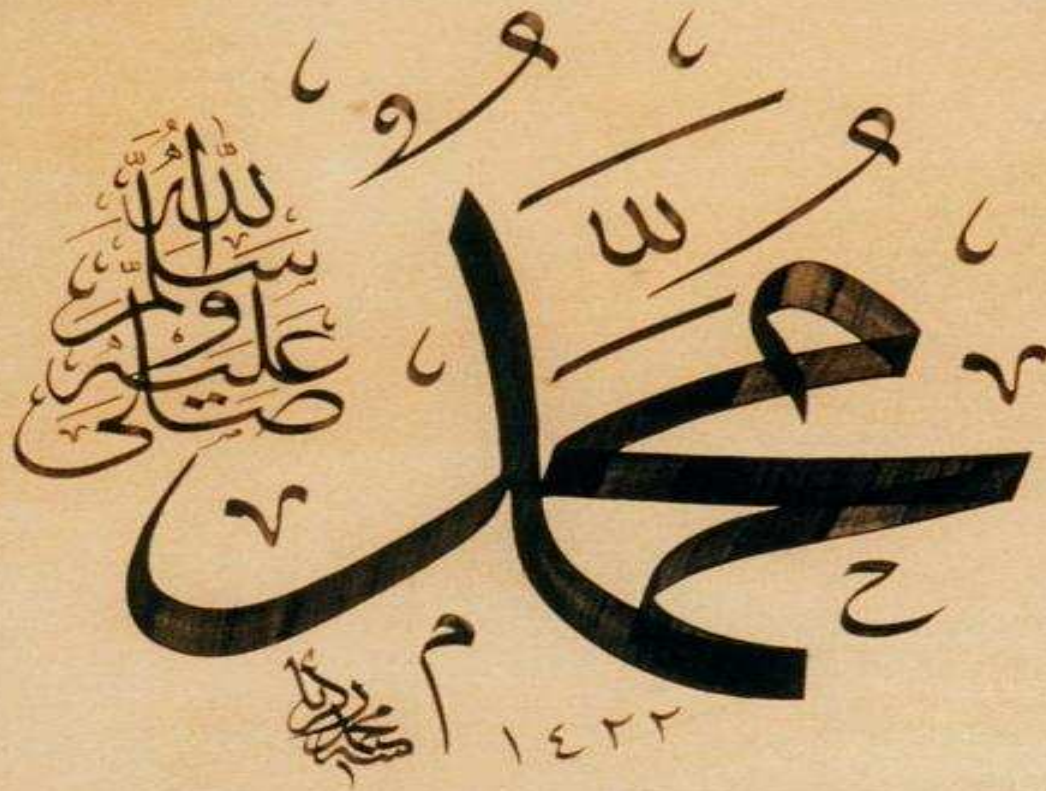 مُحَمَّدُ
صَلَّى اللهُ عَلَيْهِ وَسَلَّمَ
١٤٢٢